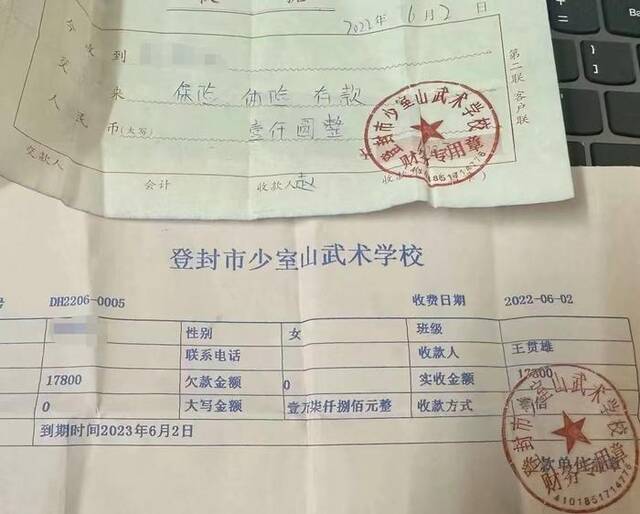 2022年6月2日
今收到
交来 保险 体险 存款
人民币(大写) 壹仟圆整
第二联 客户联
登封市少室山武术学校
财务专用章
交款人 会计 收款人 赵
登封市少室山武术学校
号 DH2206-0005 收费日期 2022-06-02
性别 女 班级
联系电话 收款人 王贯雄
17800 欠款金额 0 实收金额 17800
0 大写金额 壹万柒仟捌佰元整 收款方式 微信
到期时间2023年6月2日
收款单位
登封市少室山武术学校
财务专用章
4101851714776